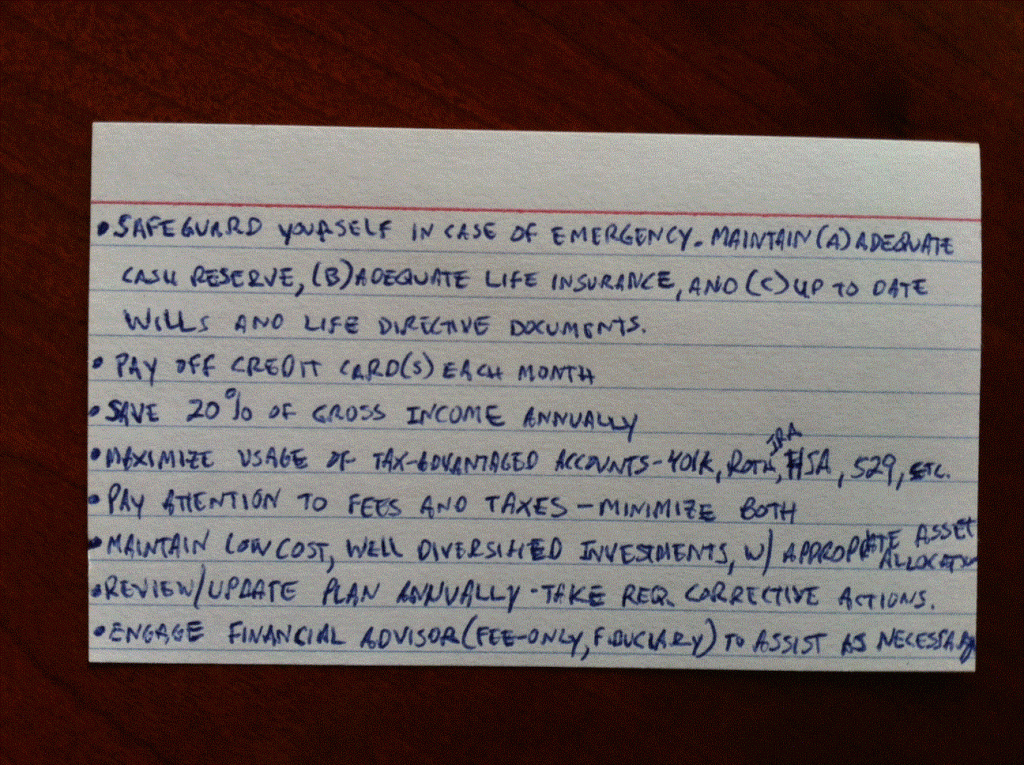 • SAFEGUARD YOURSELF IN CASE OF EMERGENCY. MAINTAIN (A) ADEQUATE
CASH RESERVE, (B) ADEQUATE LIFE INSURANCE, AND (C) UP TO DATE
WILLS AND LIFE DIRECTIVE DOCUMENTS.
• PAY OFF CREDIT CARD(S) EACH MONTH
• SAVE 20% OF GROSS INCOME ANNUALLY
• MAXIMIZE USAGE OF TAX-ADVANTAGED ACCOUNTS - 401K, ROTH IRA, HSA, 529, ETC.
• PAY ATTENTION TO FEES AND TAXES - MINIMIZE BOTH
• MAINTAIN LOW COST, WELL DIVERSIFIED INVESTMENTS, W/ APPROPRIATE ASSET ALLOCATION
• REVIEW/UPDATE PLAN ANNUALLY - TAKE REQ. CORRECTIVE ACTIONS.
• ENGAGE FINANCIAL ADVISOR (FEE-ONLY, FIDUCIARY) TO ASSIST AS NECESSARY